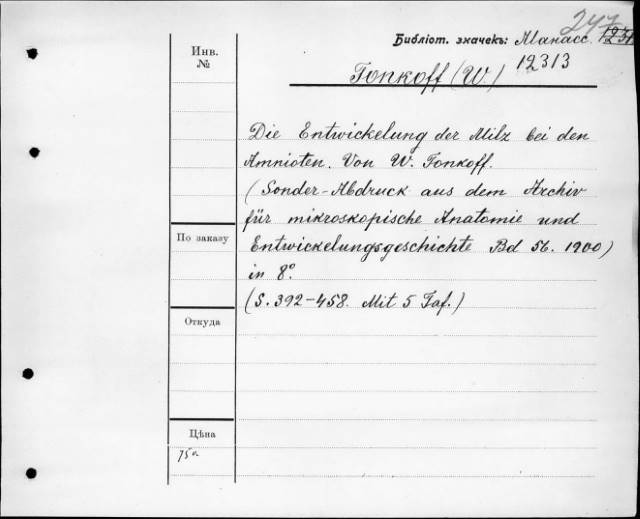 247
Библіот. значекъ: Манасс.
12313
Инв.
№
Tonkoff (W.)
Die Entwickelung der Milz bei den
Amnioten. Von W. Tonkoff.
(Sonder-Abdruck aus dem Archiv
für mikroskopische Anatomie und
Entwickelungsgeschichte Bd 56. 1900)
in 8°
(S. 392-458. Mit 5 Taf.)
По заказу
Откуда
Цѣна